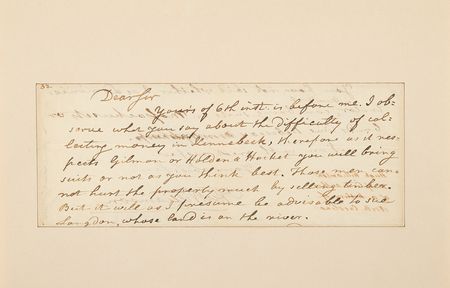 32
Dear Sir
Yours of 6th inst. is before me. I ob-
serve what you say about the difficulty of col-
lecting money in Kennebeck, therefore as it res-
pects Gilman or Holden & Hacket you will bring
suits or not as you think best. Those men can-
not hurt the property much by selling timber.
But it will as I presume be advisable to sue
Langdon, whose land is on the river.